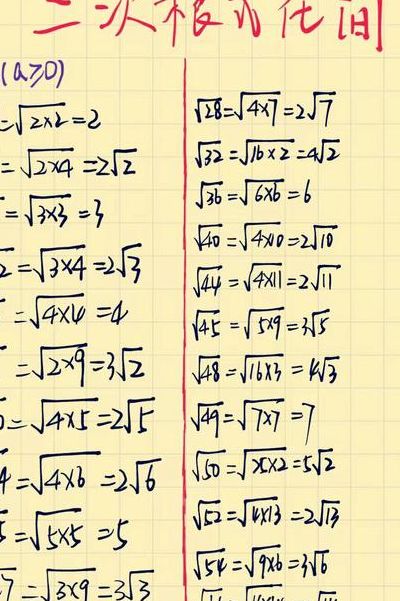 二次根式化间
(a≥0)
=√2×2=2
=√2×4=2√2
=√3×3=3
2=√3×4=2√3
=√4×4=4
=√2×9=3√2
0=√4×5=2√5
4=√4×6=2√6
5=√5×5=5
7=√3×9=3√3
√28=√4×7=2√7
√32=√16×2=4√2
√36=√6×6=6
√40=√4×10=2√10
√44=√4×11=2√11
√45=√5×9=3√5
√48=√16×3=4√3
√49=√7×7=7
√50=√25×2=5√2
√52=√4×13=2√13
√54=√9×6=3√6